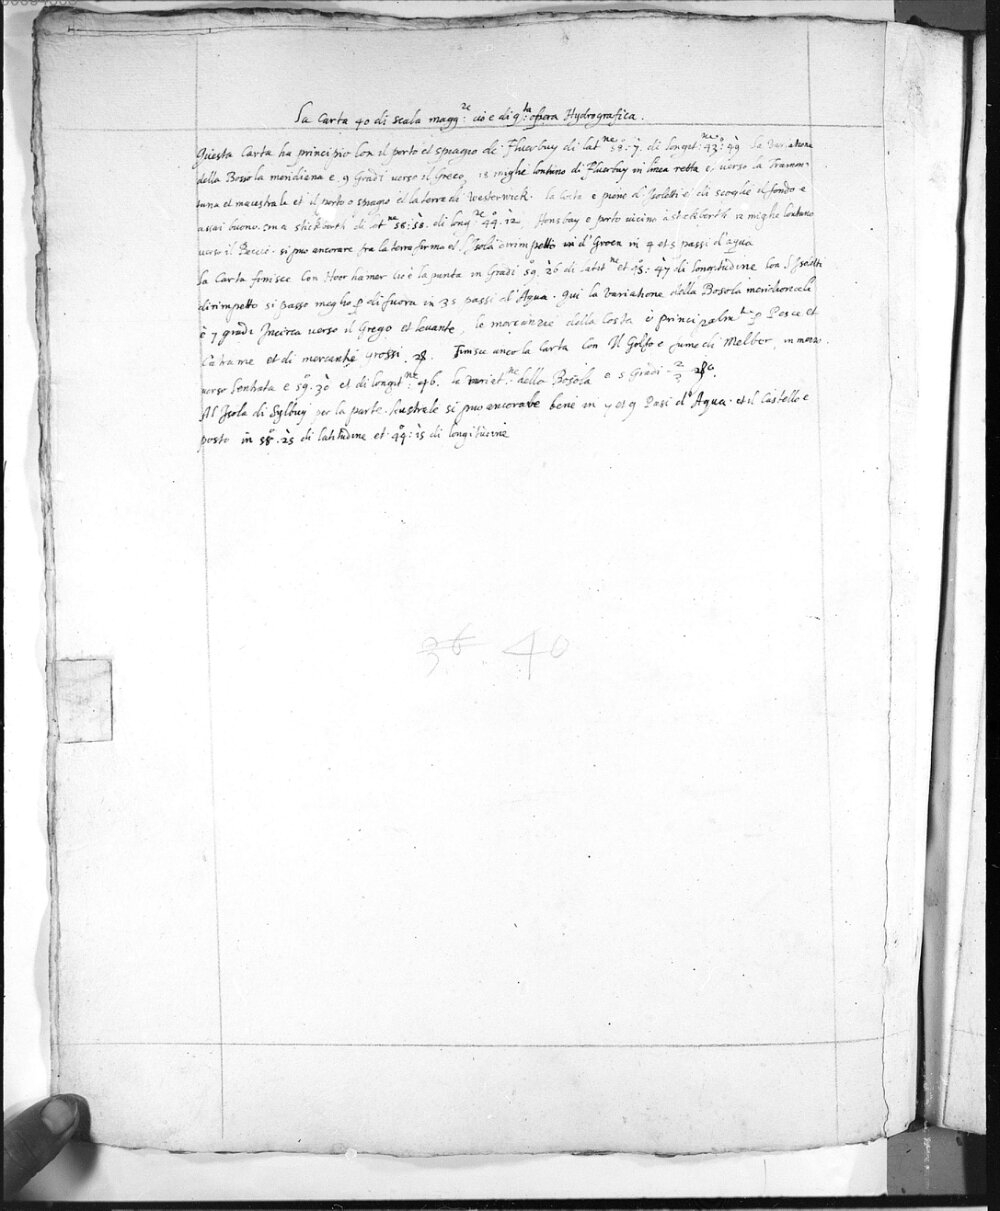 La Carta 40 di scala magg.re cio e di q.ta opera Hydrografica.
Questa Carta ha principio con il porto et spiagio de Fluerbuy di lat.ne 58°: 7. di longit.ne: 43°: 49 la Variatione
della Bossola meridiana e 9 Gradi verso il Greco, 18 miglie lontano di Fluerbuy in linea retta e verso la Tramon-
tana et maestrale et il porto o spiagio et la terra di Westerwick. la Costa e piena d'Isoletti e di scoglie il fondo e
assai buono. ma Stickborth di lat.ne 58: 58. di long.ne 44°. 12, Honsbay e porto vicino à Stickberth 12 miglie lontano
verso il Grecco. si puo ancorare fra la terra firma et l'Isola dirimpetto di Groen in 4 et 5 passi d'aqua
La Carta finisce con Hoor hamer cio è la punta in Gradi 59°. 26 di latit.ne et 45°: 47 di longitudine con l'Isoletti
dirimpetto si passo meglio p di fuora in 35 passi d'Aqua. qui la variatione della Bosola meridionale
è 7 gradi Incirca verso il Grego et levante, le mercanzie della Costa è principalm.te p Pesce et
Catrame et di mercantie grossi. 28. Finisce anco la Carta con Il Golfo e fiume di Melber, in mezo.
verso l'entrata e 59°. 30 et di longit.ne: 46. la variat.ne della Bosola e 5 Gradi 2/3
Al Isola di Sylbuy per la parte Australe si puo ancorare bene in 7 et 9 Pasi d'Aqua. et il Castello e
posto in 58°. 25 di latitudine et 44°: 15 di longitudine
36 40